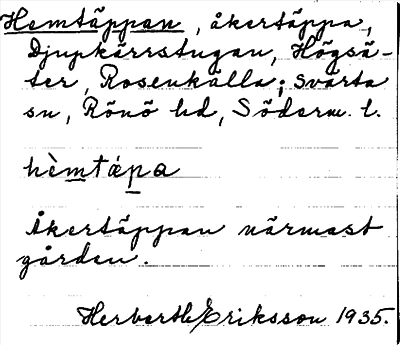 Hemtäppan, åkertäppa,
Djupkärrstugan, Högsä-
ter, Rosenkälla; Svärta
sn, Rönö hd, Söderm. l.
hèmtápa
Åkertäppan närmast
gården.
Herberth Eriksson 1935.